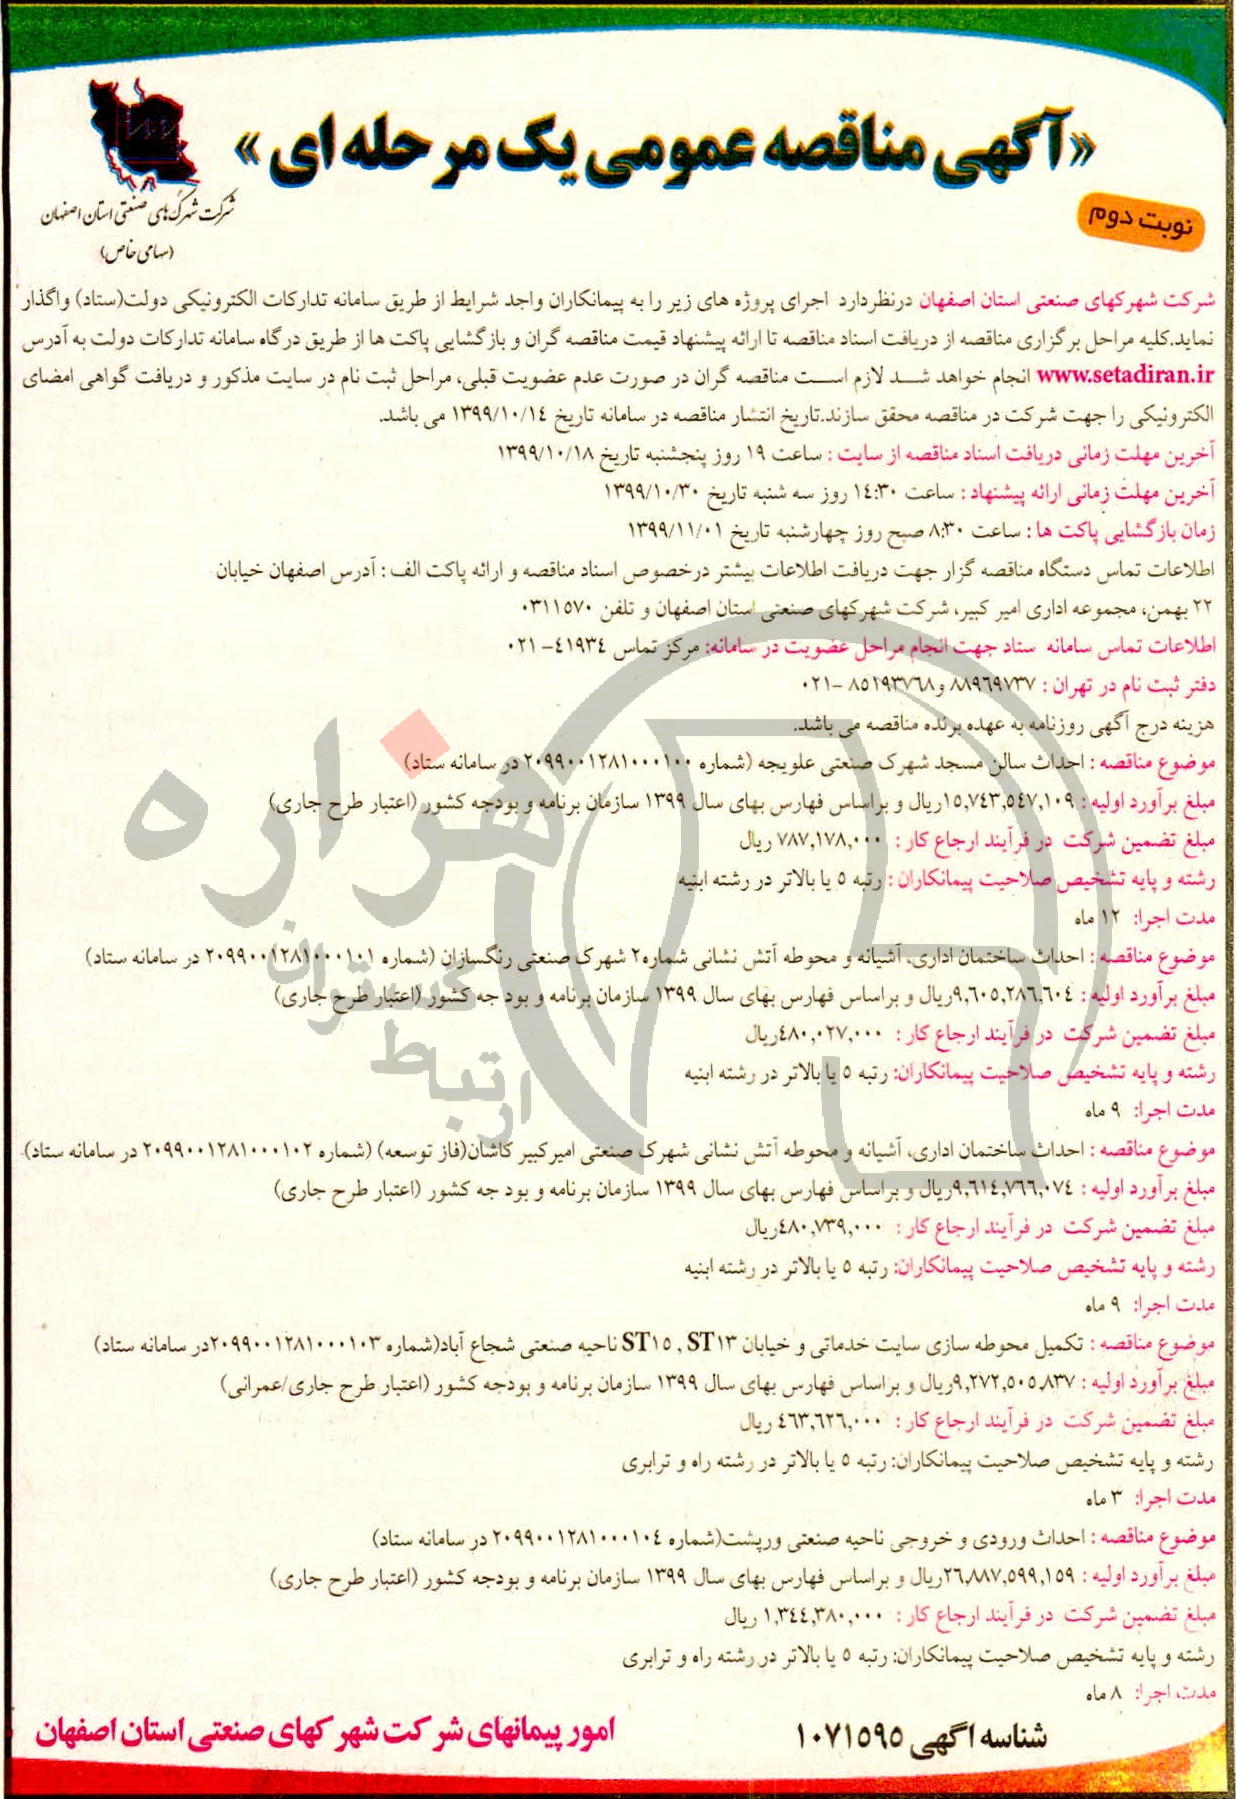 «آگهی مناقصه عمومی یک مرحله ای»
شرکت شهرک‌های صنعتی استان اصفهان
(سهامی خاص)
نوبت دوم
شرکت شهرکهای صنعتی استان اصفهان درنظردارد اجرای پروژه های زیر را به پیمانکاران واجد شرایط از طریق سامانه تدارکات الکترونیکی دولت(ستاد) واگذار
نماید.کلیه مراحل برگزاری مناقصه از دریافت اسناد مناقصه تا ارائه پیشنهاد قیمت مناقصه گران و بازگشایی پاکت ها از طریق درگاه سامانه تدارکات دولت به آدرس
www.setadiran.ir انجام خواهد شد لازم است مناقصه گران در صورت عدم عضویت قبلی، مراحل ثبت نام در سایت مذکور و دریافت گواهی امضای
الکترونیکی را جهت شرکت در مناقصه محقق سازند.تاریخ انتشار مناقصه در سامانه تاریخ ۱۳۹۹/۱۰/۱۴ می باشد.
آخرین مهلت زمانی دریافت اسناد مناقصه از سایت : ساعت ۱۹ روز پنجشنبه تاریخ ۱۳۹۹/۱۰/۱۸
آخرین مهلت زمانی ارائه پیشنهاد : ساعت ۱۴:۳۰ روز سه شنبه تاریخ ۱۳۹۹/۱۰/۳۰
زمان بازگشایی پاکت ها : ساعت ۸:۳۰ صبح روز چهارشنبه تاریخ ۱۳۹۹/۱۱/۰۱
اطلاعات تماس دستگاه مناقصه گزار جهت دریافت اطلاعات بیشتر درخصوص اسناد مناقصه و ارائه پاکت الف : آدرس اصفهان خیابان
۲۲ بهمن، مجموعه اداری امیر کبیر، شرکت شهرکهای صنعتی استان اصفهان و تلفن ۰۳۱۱۵۷۰
اطلاعات تماس سامانه ستاد جهت انجام مراحل عضویت در سامانه: مرکز تماس ۴۱۹۳۴-۰۲۱
دفتر ثبت نام در تهران : ۸۸۹۶۹۷۳۷ و۸۵۱۹۳۷۶۸ -۰۲۱
هزینه درج آگهی روزنامه به عهده برنده مناقصه می باشد.
موضوع مناقصه : احداث سالن مسجد شهرک صنعتی علویجه (شماره ۲۰۹۹۰۰۱۲۸۱۰۰۰۱۰۰ در سامانه ستاد)
مبلغ برآورد اولیه : ۱۵,۷۴۳,۵۴۷,۱۰۹ریال و براساس فهارس بهای سال ۱۳۹۹ سازمان برنامه و بودجه کشور (اعتبار طرح جاری)
مبلغ تضمین شرکت در فرآیند ارجاع کار : ۷۸۷,۱۷۸,۰۰۰ ریال
رشته و پایه تشخیص صلاحیت پیمانکاران : رتبه ۵ یا بالاتر در رشته ابنیه
مدت اجرا: ۱۲ ماه
موضوع مناقصه : احداث ساختمان اداری، آشیانه و محوطه آتش نشانی شماره۲ شهرک صنعتی رنگسازان (شماره ۲۰۹۹۰۰۱۲۸۱۰۰۰۱۰۱ در سامانه ستاد)
مبلغ برآورد اولیه : ۹,۶۰۵,۲۸۶,۶۰۴ریال و براساس فهارس بهای سال ۱۳۹۹ سازمان برنامه و بود جه کشور (اعتبار طرح جاری)
مبلغ تضمین شرکت در فرآیند ارجاع کار : ۴۸۰,۰۲۷,۰۰۰ریال
رشته و پایه تشخیص صلاحیت پیمانکاران: رتبه ۵ یا بالاتر در رشته ابنیه
مدت اجرا: ۹ ماه
موضوع مناقصه : احداث ساختمان اداری، آشیانه و محوطه آتش نشانی شهرک صنعتی امیرکبیر کاشان(فاز توسعه) (شماره ۲۰۹۹۰۰۱۲۸۱۰۰۰۱۰۲ در سامانه ستاد)
مبلغ برآورد اولیه : ۹,۶۱۴,۷۶۶,۰۷۴ریال و براساس فهارس بهای سال ۱۳۹۹ سازمان برنامه و بود جه کشور (اعتبار طرح جاری)
مبلغ تضمین شرکت در فرآیند ارجاع کار : ۴۸۰,۷۳۹,۰۰۰ریال
رشته و پایه تشخیص صلاحیت پیمانکاران: رتبه ۵ یا بالاتر در رشته ابنیه
مدت اجرا: ۹ ماه
موضوع مناقصه : تکمیل محوطه سازی سایت خدماتی و خیابان ST۱۵ , ST۱۳ ناحیه صنعتی شجاع آباد(شماره ۲۰۹۹۰۰۱۲۸۱۰۰۰۱۰۳در سامانه ستاد)
مبلغ برآورد اولیه : ۹,۲۷۲,۵۰۵,۸۳۷ریال و براساس فهارس بهای سال ۱۳۹۹ سازمان برنامه و بودجه کشور (اعتبار طرح جاری/عمرانی)
مبلغ تضمین شرکت در فرآیند ارجاع کار : ۴۶۳,۶۲۶,۰۰۰ ریال
رشته و پایه تشخیص صلاحیت پیمانکاران: رتبه ۵ یا بالاتر در رشته راه و ترابری
مدت اجرا: ۳ ماه
موضوع مناقصه : احداث ورودی و خروجی ناحیه صنعتی ورپشت(شماره ۲۰۹۹۰۰۱۲۸۱۰۰۰۱۰۴ در سامانه ستاد)
مبلغ برآورد اولیه : ۲۶,۸۸۷,۵۹۹,۱۵۹ریال و براساس فهارس بهای سال ۱۳۹۹ سازمان برنامه و بودجه کشور (اعتبار طرح جاری)
مبلغ تضمین شرکت در فرآیند ارجاع کار : ۱,۳۴۴,۳۸۰,۰۰۰ ریال
رشته و پایه تشخیص صلاحیت پیمانکاران: رتبه ۵ یا بالاتر در رشته راه و ترابری
مدت اجرا: ۸ ماه
شناسه اگهی ۱۰۷۱۵۹۵
امور پیمانهای شرکت شهرکهای صنعتی استان اصفهان
هزاره
ارتباط گستر توران